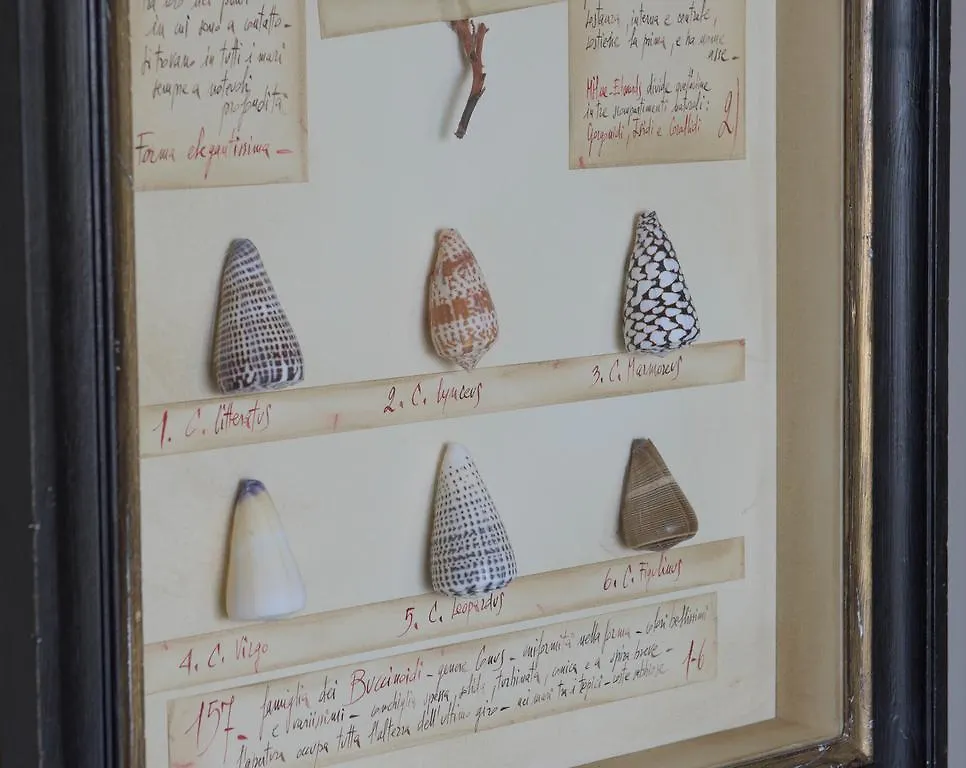 in cui sono a contatto -
si trovano in tutti i mari
sempre a notevoli
profondità
Forma elegantissima -
sostanza, interna e centrale,
sostiene la prima, e ha nome
asse -
Milne-Edwards, divide
in tre scompartimenti naturali:
Gorgonidi, Isidi e Corallidi 2)
1. C. litteratus
2. C. lynceus
3. C. Marmoreus
4. C. Virgo
5. C. Leopardus
6. C. Figulinus
157 - famiglia dei Buccinoidi - genere Conus - uniformità nella forma - colori bellissimi
e variissimi - conchiglia spessa, solida, turbinata, conica e a spira breve -
l'apertura occupa tutta l'altezza dell'ultimo giro - nei mari tropici - coste sabbiose 1-6